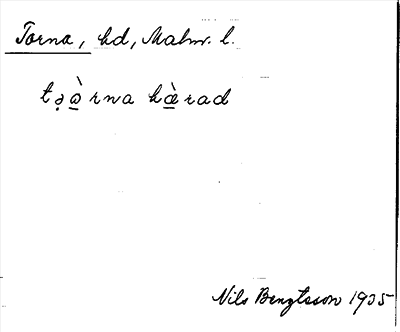 Torna, hd, Malm. l.
tə̣ò̲rna hæ̲̀rad
Nils Bengtsson 1935